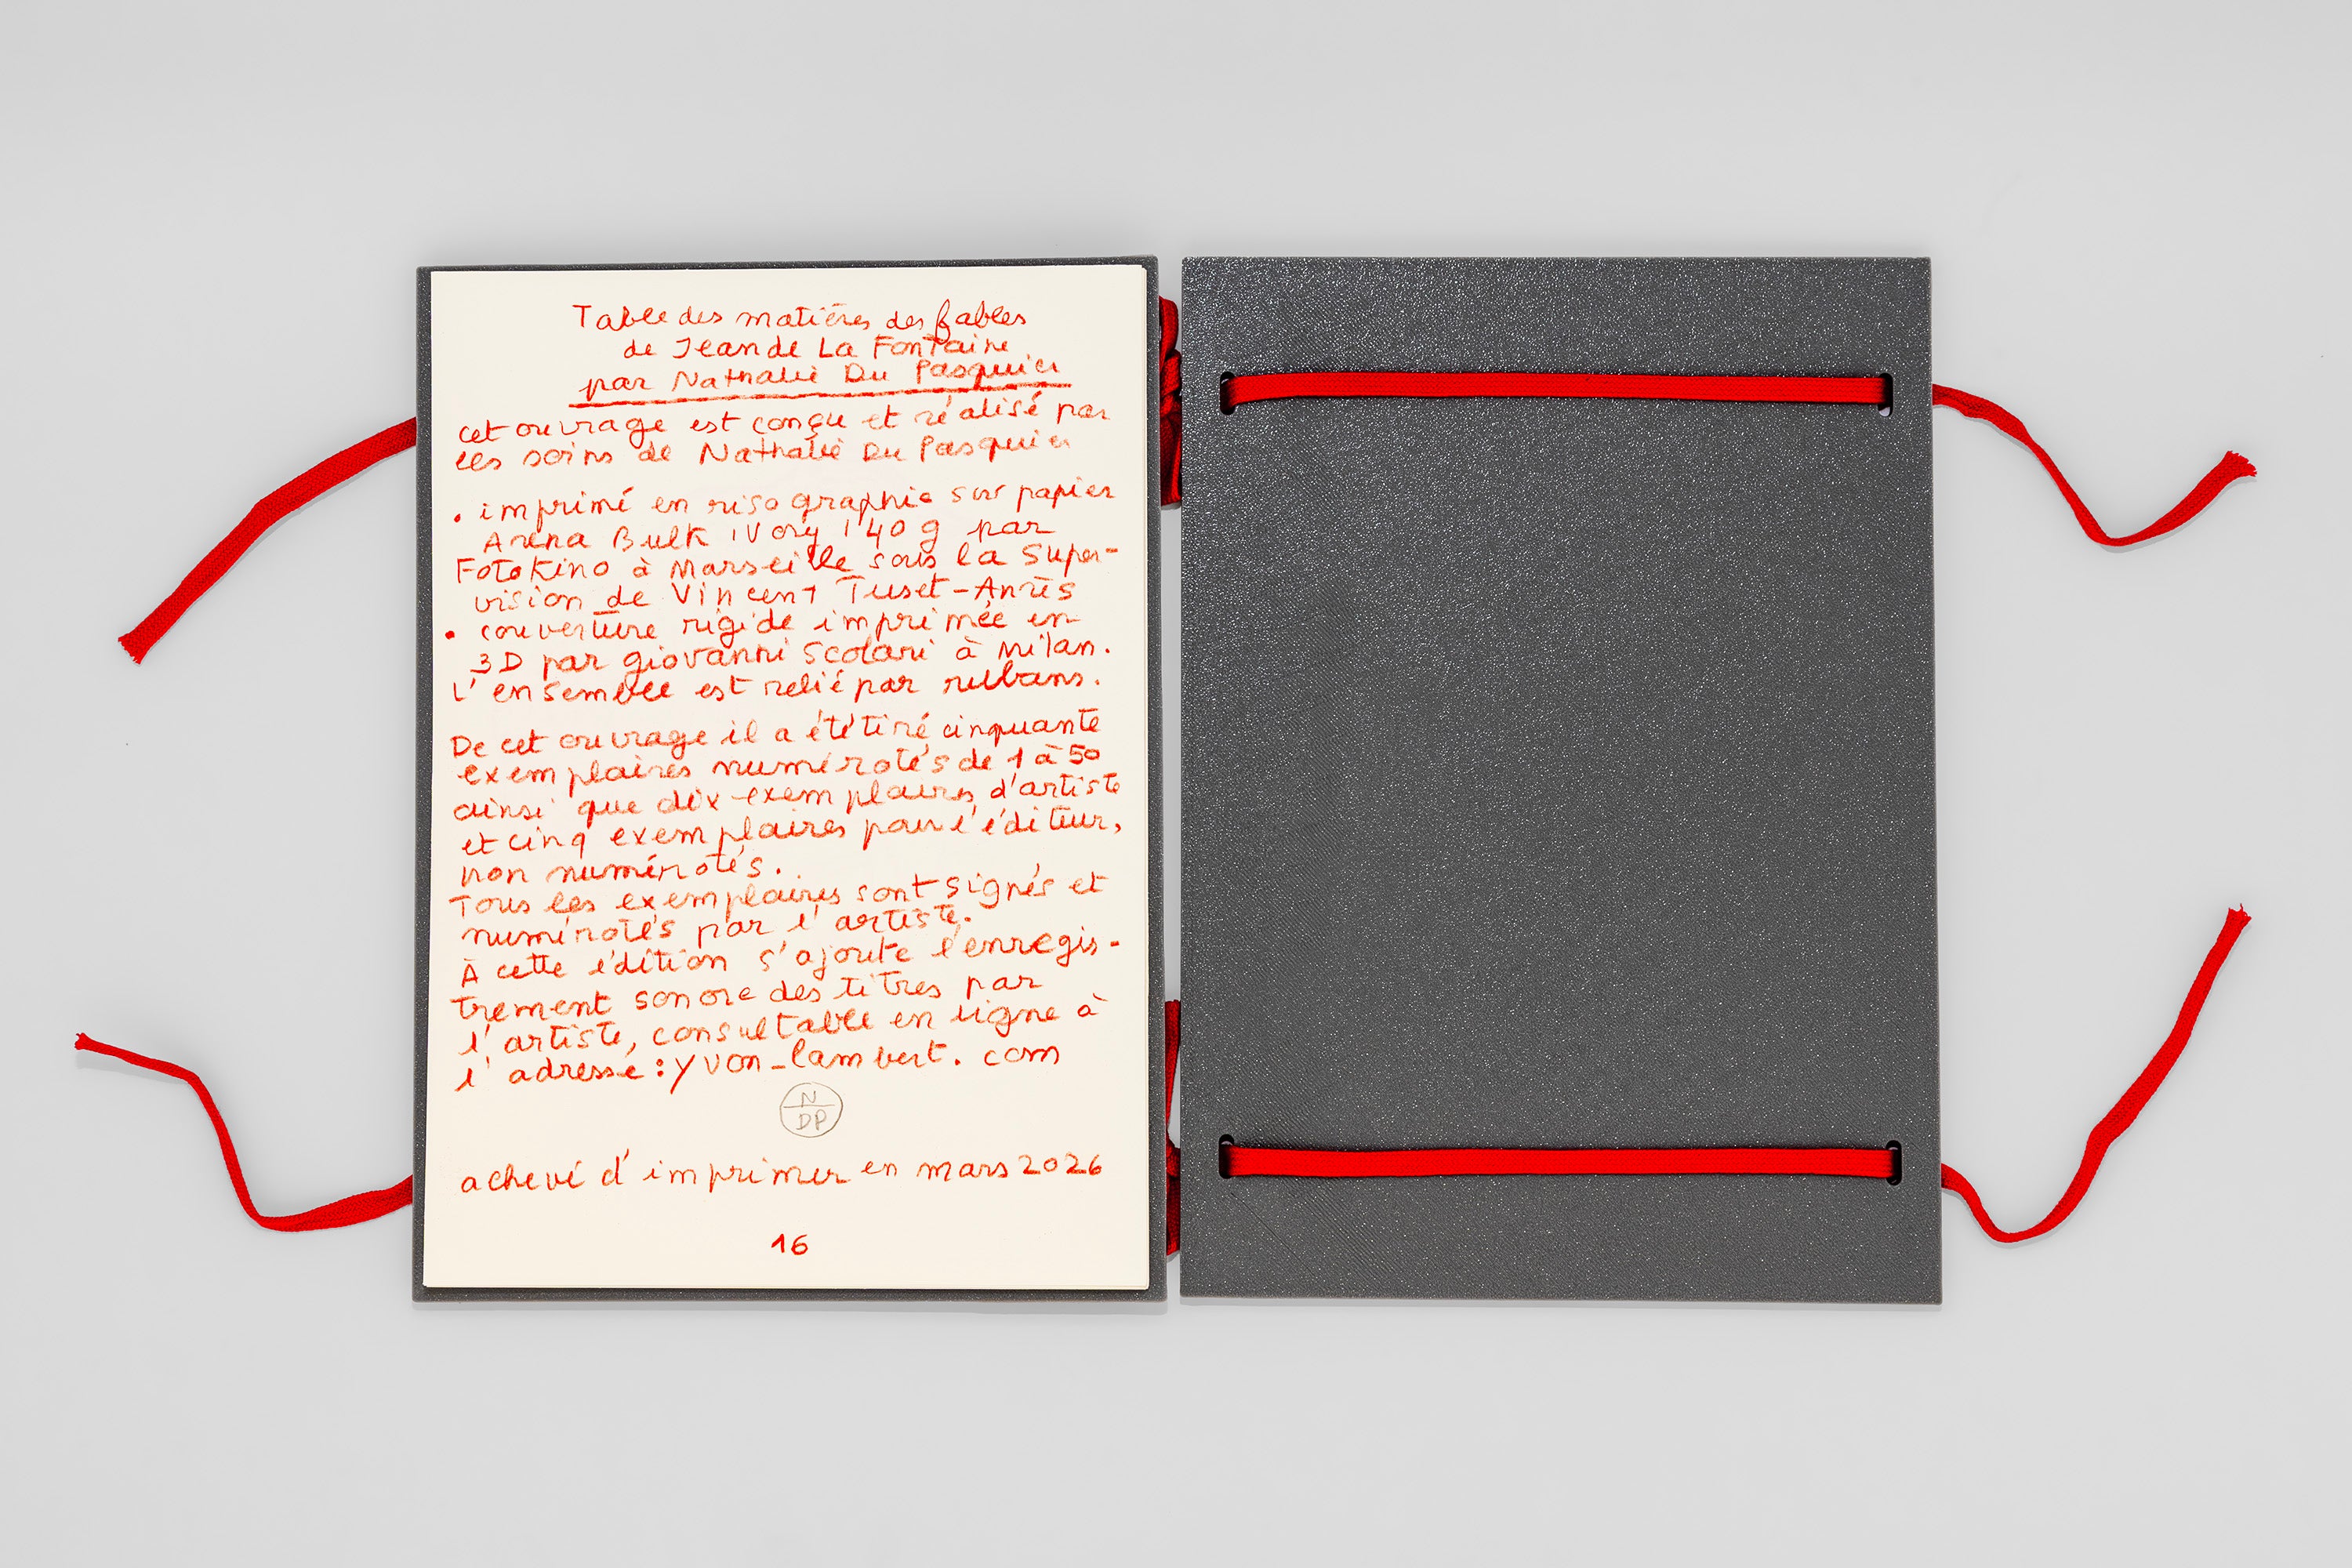 Table des matières des fables
de Jean de La Fontaine
par Nathalie Du Pasquier
cet ouvrage est conçu et réalisé par
les soins de Nathalie Du Pasquier
• imprimé en risographie sur papier
Arena Bulk ivory 140 g par
Fotokino à Marseille sous la super-
vision de Vincent Tuset-Anrès
• couverture rigide imprimée en
3D par giovanni Scolari à Milan.
L'ensemble est relié par rubans.
De cet ouvrage il a été tiré cinquante
exemplaires numérotés de 1 à 50
ainsi que dix exemplaires d'artiste
et cinq exemplaires pour l'éditeur,
non numérotés.
Tous les exemplaires sont signés et
numérotés par l'artiste.
À cette édition s'ajoute l'enregis-
trement sonore des titres par
l'artiste, consultable en ligne à
l'adresse : yvon-lambert.com
N
DP
achevé d'imprimer en mars 2026
16